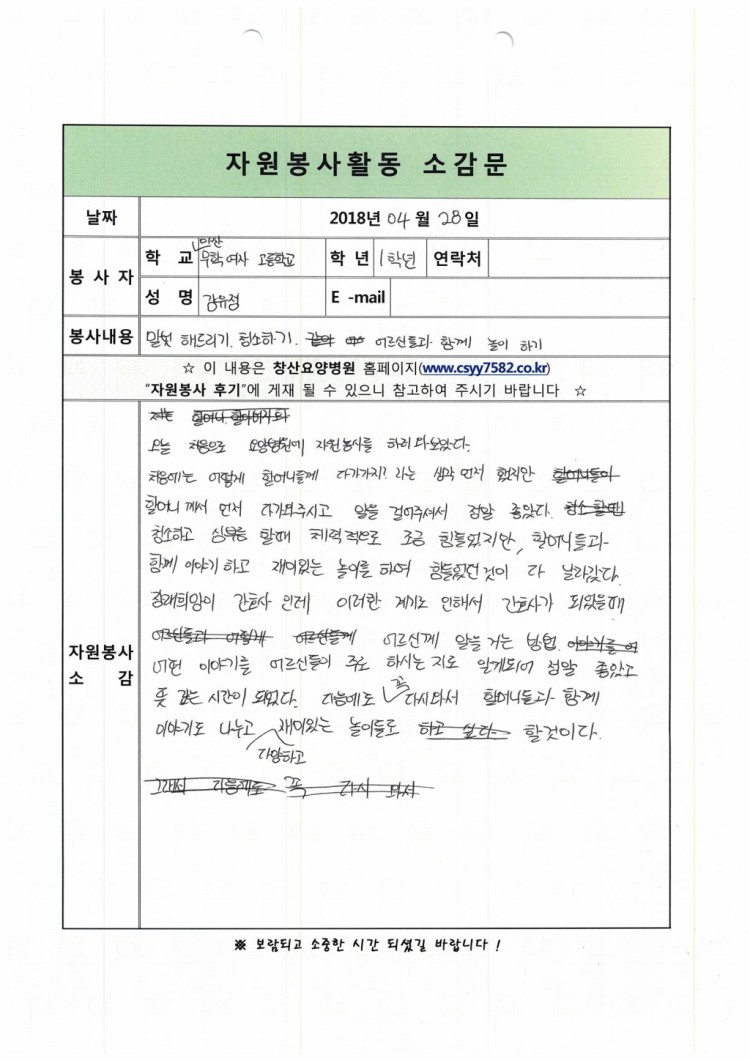 자원봉사활동 소감문
날짜 2018년 04월 28일
봉사자 학교 마산무학여자 고등학교 학년 1학년 연락처
성명 강유정 E-mail
봉사내용 말벗 해드리기. 청소하기. 어르신들과 함께 놀이 하기
☆ 이 내용은 창산요양병원 홈페이지(www.csyy7582.co.kr)
"자원봉사 후기"에 게재 될 수 있으니 참고하여 주시기 바랍니다 ☆
자원봉사 소감
저는 할머니. 할아버지와
오늘 처음으로 요양병원에 자원봉사를 하러 와보았다.
처음에는 어떻게 할머니들께 다가가지? 라는 생각 먼저 했지만 할머니들이
할머니께서 먼저 다가와주시고 말을 걸어주셔서 정말 좋았다. 청소할때
청소하고 심부름 할때 체력적으로 조금 힘들었지만, 할머니들과
함께 이야기 하고 재미있는 놀이를 하여 힘들었던것이 다 날라갔다.
장래희망이 간호사 인데 이러한 계기로 인해서 간호사가 되었을때
어르신들과 어떻게 어르신들께 어르신께 말을 거는 방법. 이야기를
어떤 이야기를 어르신들이 주로 하시는지로 알게되어 정말 좋았고
뜻 깊는 시간이 되었다. 다음에도 꼭 다시와서 할머니들과 함께
이야기도 나누고 다양하고 재미있는 놀이들로 하고 싶다. 할것이다.
그래서 다음에도 꼭 다시 와서
※ 보람되고 소중한 시간 되셨길 바랍니다 !